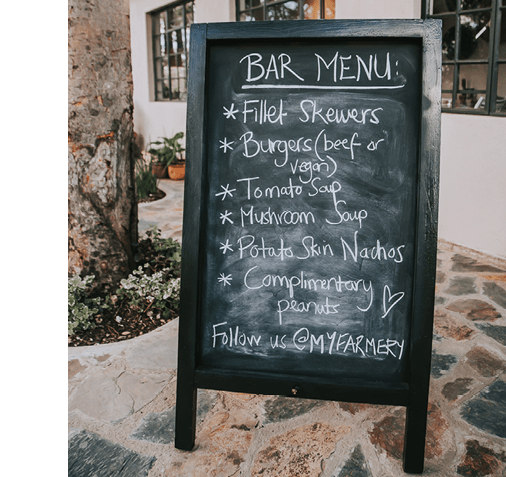 BAR MENU:
* Fillet Skewers
* Burgers (beef or
vegan)
* Tomato Soup
* Mushroom Soup
* Potato Skin Nachos
* Complimentary
peanuts
Follow us @MYFARMERY